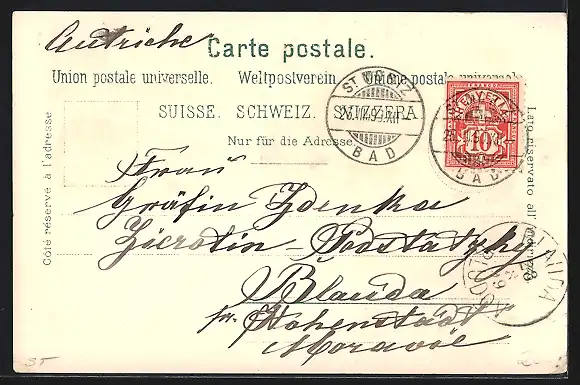 Autriche
Carte postale.
Union postale universelle. Weltpostverein. Unione postale universale
SUISSE. SCHWEIZ. SVIZZERA
Nur für die Adresse.
Côté réservé à l'adresse
Lato riservato all'indirizzo
ST. MORITZ
BAD
10
BAD
Frau
Gräfin Zdenka
Zierotin-Podstatzky
Blauda
pr. Hohenstadt
Moravie
ST